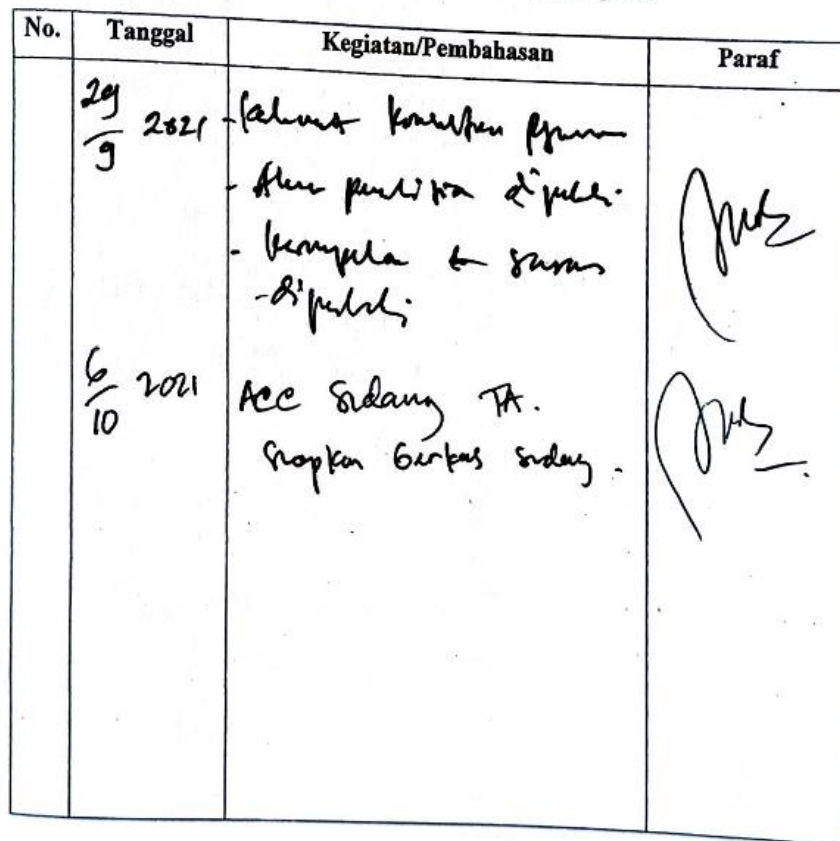 No. Tanggal Kegiatan/Pembahasan Paraf
29/9 2021 -
- penelitian diperbaiki
- kesimpulan & saran
- diperbaiki
6/10 2021 ACC Sidang TA.
Siapkan berkas sidang.